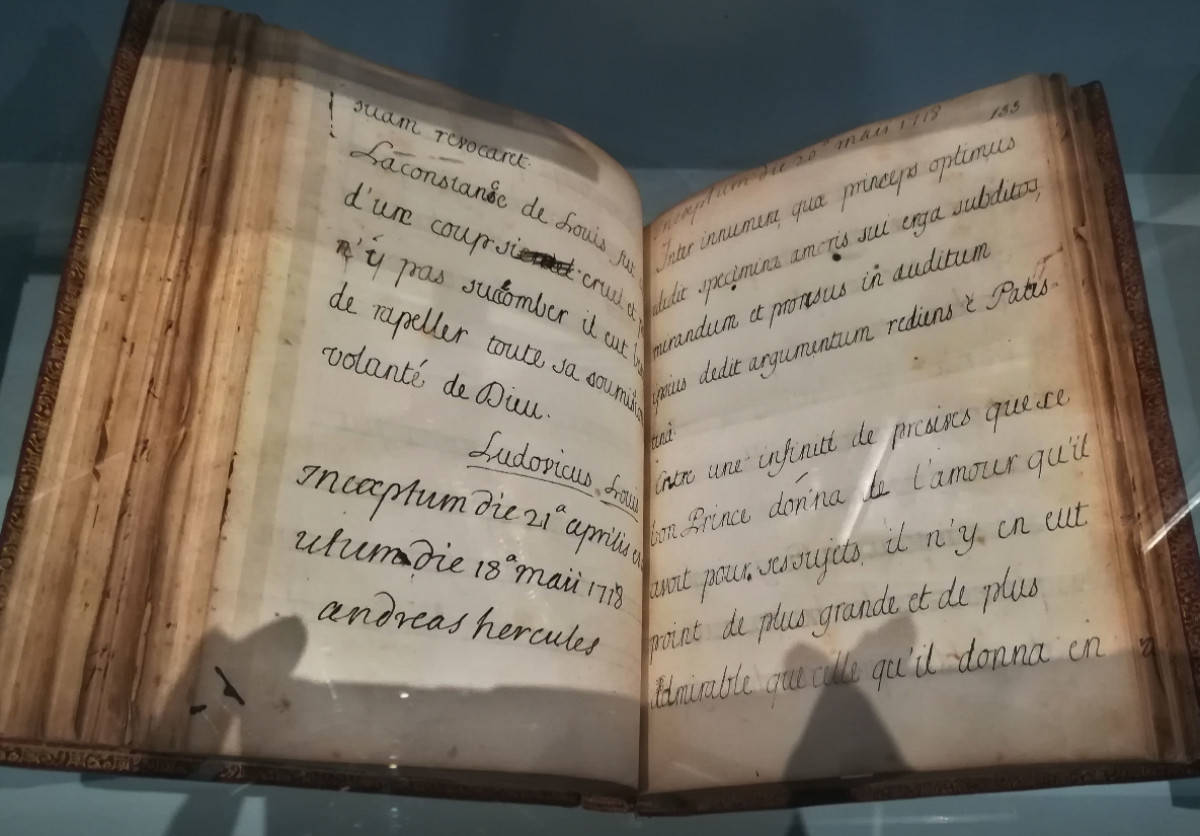 suam revocaret.
La constance de Louis fut
d'un coup si cruel et
n'y pas succomber il eut
de rapeller toute sa soumission
volanté de Dieu.
Ludovicus Louis
inceptum die 21ª aprilis
die 18ª maii 1718
andreas hercules
133
inceptum die 20ª maii 1718
Inter innumera quæ princeps optimus
dedit specimina amoris sui erga subditos,
mirandum et prorsus in auditum
ipsius dedit argumentum rediens è Patis-
tinâ.
Entre une infinité de preuves que ce
bon Prince donna de l'amour qu'il
avoit pour ses sujets, il n'y en eut
point de plus grande et de plus
admirable que celle qu'il donna en